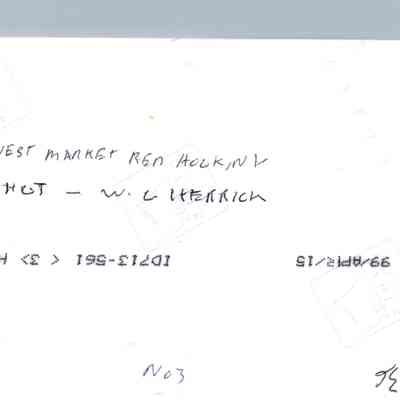 WEST MARKET RED HOOK, N Y
HGT — W. C HERRICK
99/APR/15 ID713-561 < 3> H
No 3